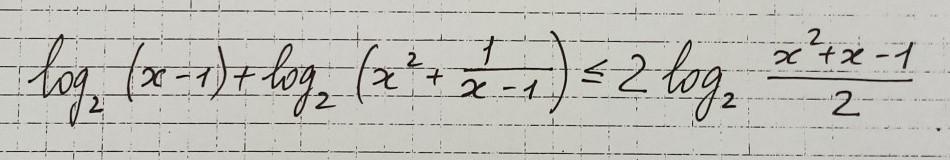 log₂ (x-1) + log₂ (x² + 1/(x-1)) ≤ 2 log₂ (x²+x-1)/2